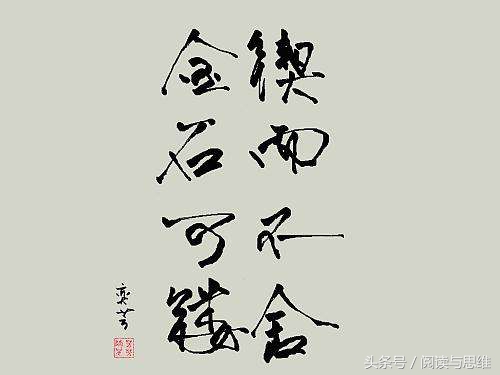 锲而不舍
金石可镂
头条号 / 阅读与思维